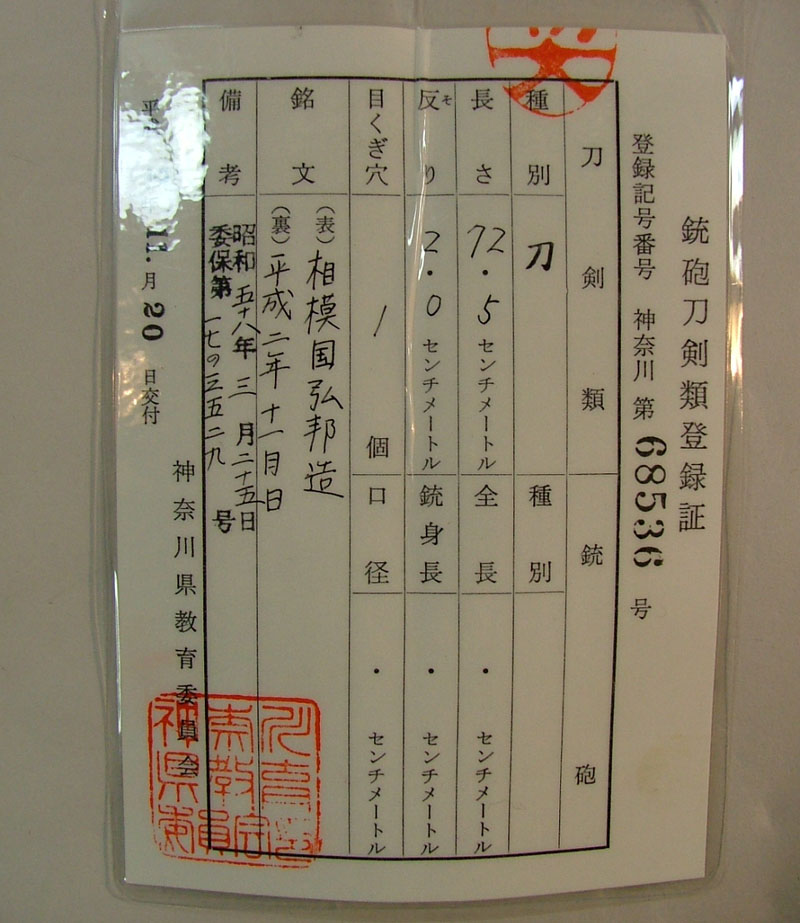 銃砲刀剣類登録証
登録記号番号 神奈川 第 68536 号
刀剣類 銃砲
種別 刀 種別
長さ 72.5 センチメートル 全長 ・ センチメートル
反り 2.0 センチメートル 銃身長 ・ センチメートル
そ
目くぎ穴 1 個 口径 ・ センチメートル
銘文 (表) 相模国弘邦造
(裏) 平成二年十一月日
備考 昭和五十八年三月二十五日
委保第一七の三五二九号
平 11.月20日交付
神奈川県教育委員会